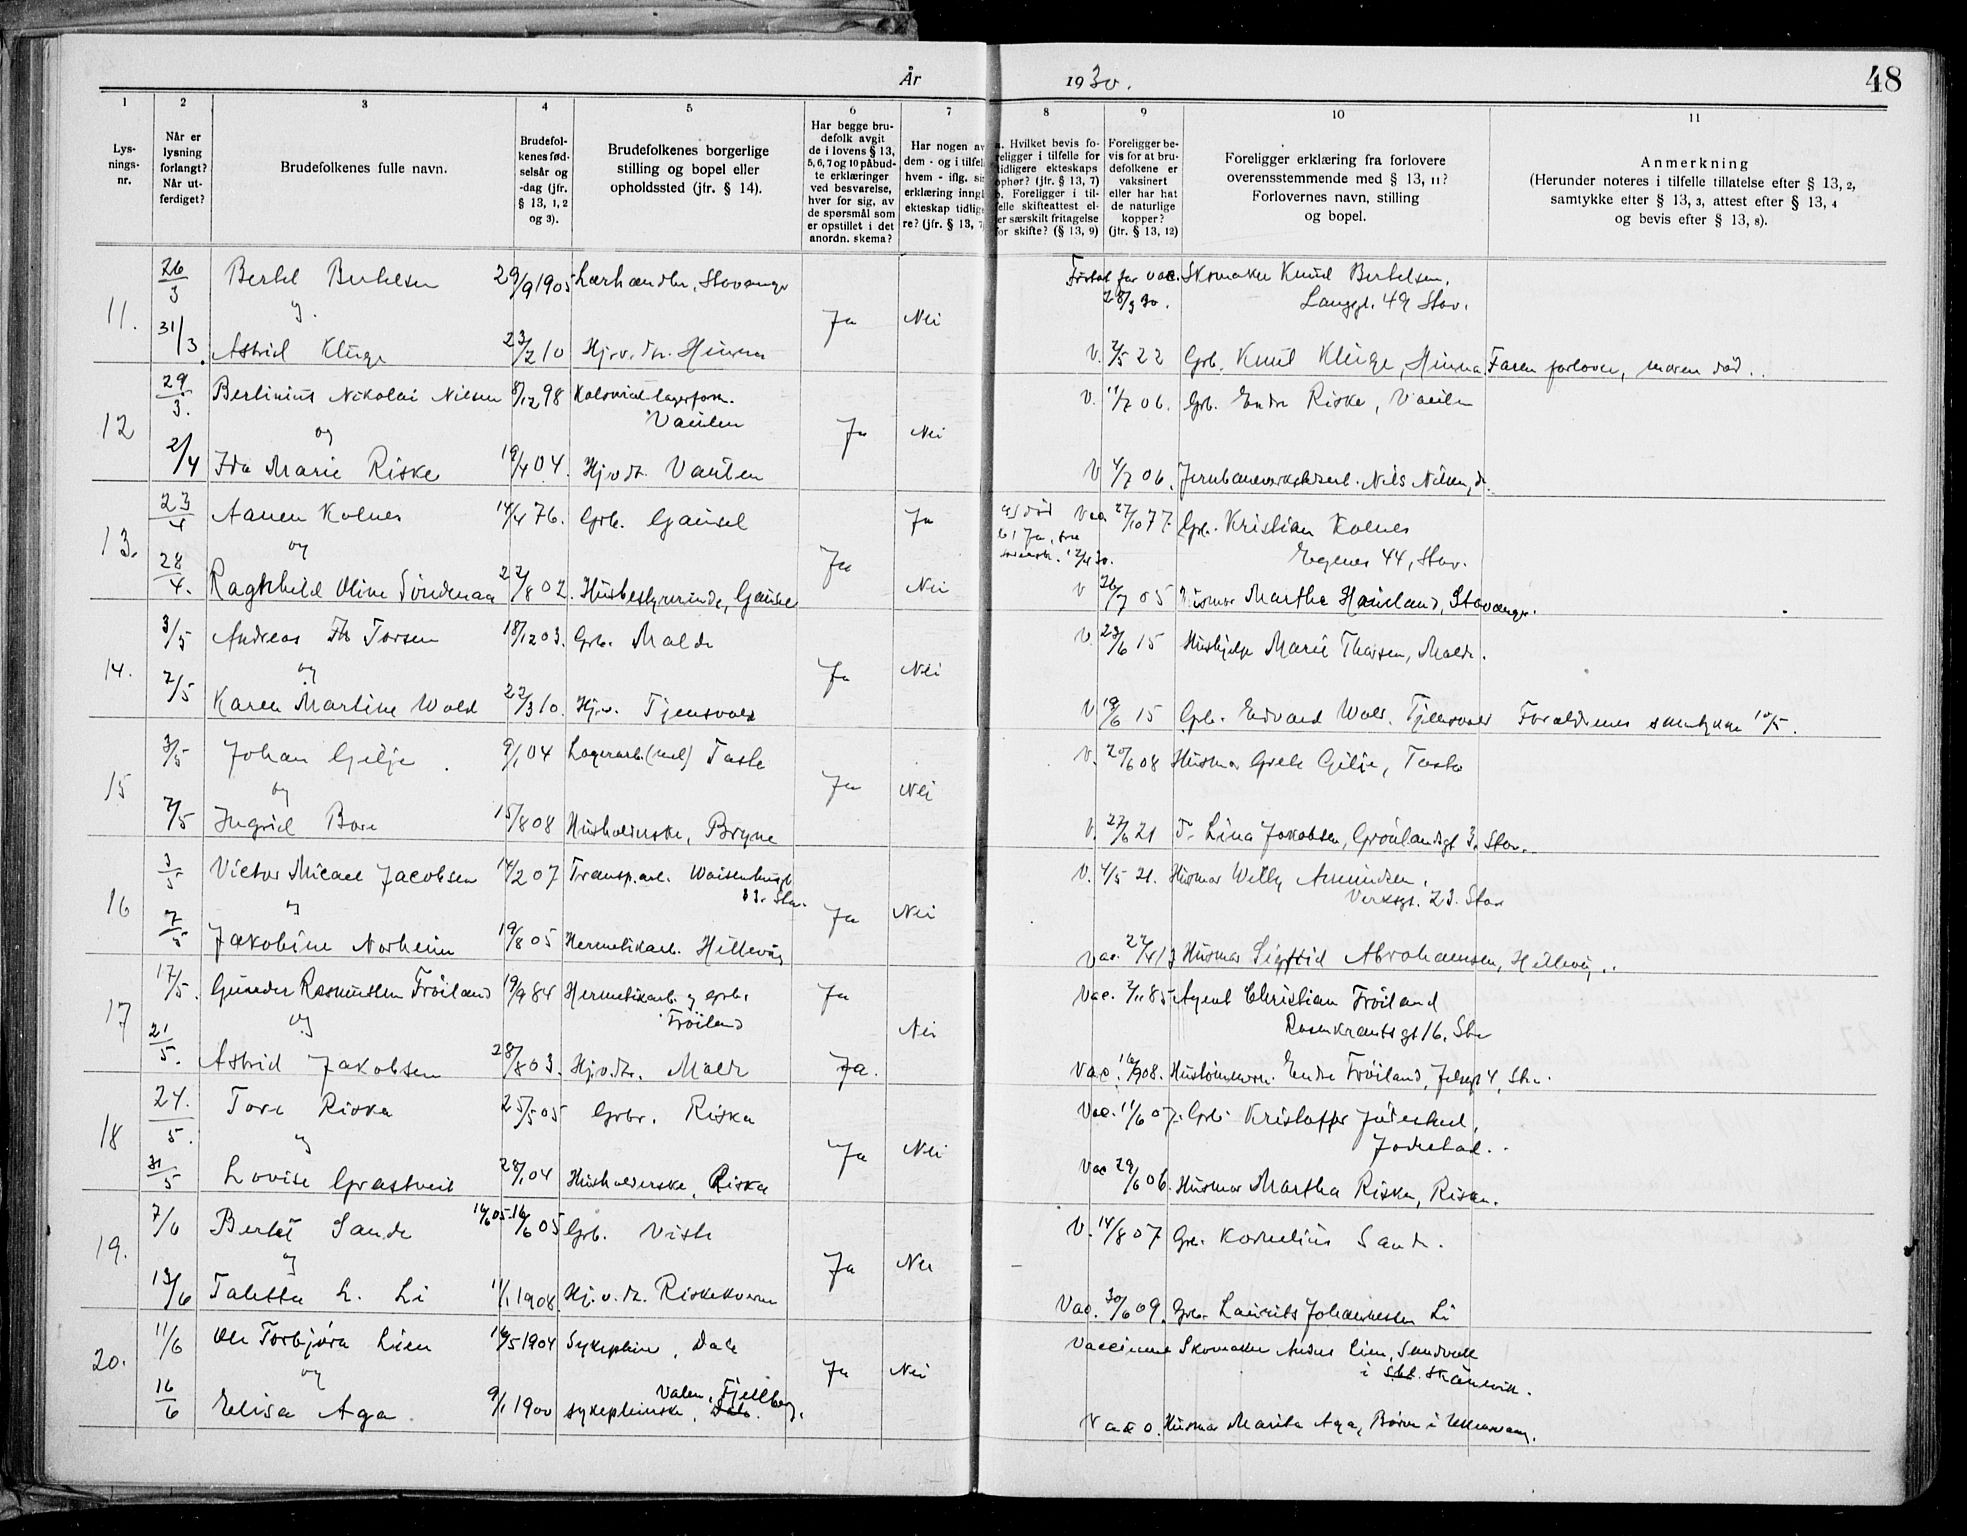 År 1930.
48
1 2 3 4 5 6 7 8 9 10 11
Lys-
nings-
nr.
Når er
lysning
forlangt?
Når ut-
ferdiget?
Brudefolkenes fulle navn.
Brudefol-
kenes fød-
selsår og
-dag (jfr.
§ 13, 1, 2
og 3).
Brudefolkenes borgerlige
stilling og bopel eller
opholdssted (jfr. § 14).
Har begge bru-
defolk avgit
de i lovens § 13,
5, 6, 7 og 10 påbud-
te erklæringer
ved besvarelse,
hver for sig, av
de spørsmål som
er opstillet i det
anordn. skema?
Har nogen av
dem - og i tilfel
hvem - iflg. si
erklæring inngå
ekteskap tidlig
re? (jfr. § 13, 7
a. Hvilket bevis fo-
religger i tilfelle for
tidligere ekteskaps
ophør? (jfr. § 13, 7)
b. Foreligger i til-
felle skifteattest el-
er særskilt fritagelse
for skifte? (§ 13, 9)
Foreligger be-
vis for at bru-
defolkene er
vaksinert
eller har hat
de naturlige
kopper?
(jfr. § 13, 12)
Foreligger erklæring fra forlovere
overensstemmende med § 13, 11?
Forlovernes navn, stilling
og bopel.
Anmerkning
(Herunder noteres i tilfelle tillatelse efter § 13, 2,
samtykke efter § 13, 3, attest efter § 13, 4
og bevis efter § 13, 8).
26/3 Bertel Bertelsen 29/9 1905 Lærhandler, Stavanger for vac. Skomaker Knud Bertelsen,
og 28/3 30. Langgt. 49 Stav.
11. Ja Nei
31/3 Astrid Kluge 23/2 10 Hj.v. dtr. Hinna V. 2/5 22 Grb. Knut Kluge, Hinna Faren forlover, moren död.
29/3. Bertinius Nikolai Nilsen 8/12 98 Kolonial-lagerforv. V. 11/7 06. Grb. Endre Riske, Vaulen
Vaulen
12 og Ja Nei
2/4 Ida Marie Riske 19/4 04. Hj.v.dt. Vaulen V 4/7 06. Nils Nilsen, d.
23/4 Aanen Kolnes 14/4 76. Grb. Gausel Ja a) död Vac 27/10 77. Grb. Kristian Kolnes
b) Ja,
13. og Ja 12/4 30. Egenes 44, Stav.
28/4. Ragnhild Oline Söndenaa 22/8 02. Husbestyrerinde, Gausel Nei V 26/7 05 Husmor Marthe Hauland, Stavanger.
3/5 Andreas Th Torsen 18/12 03. Grb. Malde V. 23/6 15 Hushjelp Marie Thorsen, Malde.
14. og Ja Nei
7/5 Karen Martine Wold 22/3 10. Hj.v. Tjensvold V 19/6 15 Grb. Edvard Wold. Tjensvold Foreldrenes samtykke 10/5.
3/5 Johan Gilje 9/1 04 Lagerarb. (mel) Tasta V. 20/6 08 Husmor Grete Gilje, Tasta
15 og Ja Nei
7/5 Ingrid Bore 15/8 08 Husholderske, Bryne V. 27/6 21 Fr. Lina Jakobsen, Grönlandsgt 3. Stav.
3/5 Victor Micael Jacobsen 14/2 07 Transp.arb. Waisenhusgt V. 4/5 21. Husmor Welly Amundsen,
33. Stav. Verksgt. 23. Stav
16 og Ja Nei
7/5 Jakobine Norheim 19/8 05 Hermetikarb. Hillevåg Vac. 27/4 13 Husmor Sigfrid Abrahamsen, Hillevåg.
17/5. Gunder Rasmussen Fröiland 19/9 84 Hermetikarb. og grbr. Ja Vac. 2/11 85 Agent Christian Fröiland
17 og Fröiland Nei Rosenkrantzgt 16. Stav
21/5. Astrid Jakobsen 28/8 03. Hj.v.dtr. Malde Ja. Vac. 16/9 08. Endre Fröiland, 4, Stav.
24./5. Tore Riska 25/5 05 Grbr. Riska Vac. 11/6 07. Grb. Kristoffer Jödestad,
18 og Ja Nei Jödestad.
31/5 Lovise Grastveit 28/1 04 Husholderske, Riska Vac 29/6 06. Husmor Martha Riska, Riska.
7/6 Bertel Sande 16/6 05. 16/6 05 Grb. Viste V. 14/8 07 Grb. Kornelius Sande.
19. og Ja Nei
13/6 Taletta L. Li 11/1 1908. Hj.v.dt. Riskekvern Vac. 30/6 09. Grb. Laurits Johannessen Li
11/6 Ole Torbjörn Lien 16/5 1904 Sykepleier, Dale Vaccinene Skomaker Anders Lien, Sandvik
i Skånevik.
20. og Ja Nei
16/6 Elisa Aga 9/1 1900 sykepleierske, Dale. Valen, Fjellberg. Vacc. Husmor Marita Aga, Börve i Ullensvang.